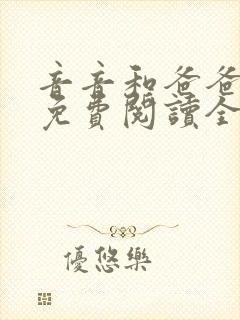 音音和爸爸
免費閱讀全
優悠樂